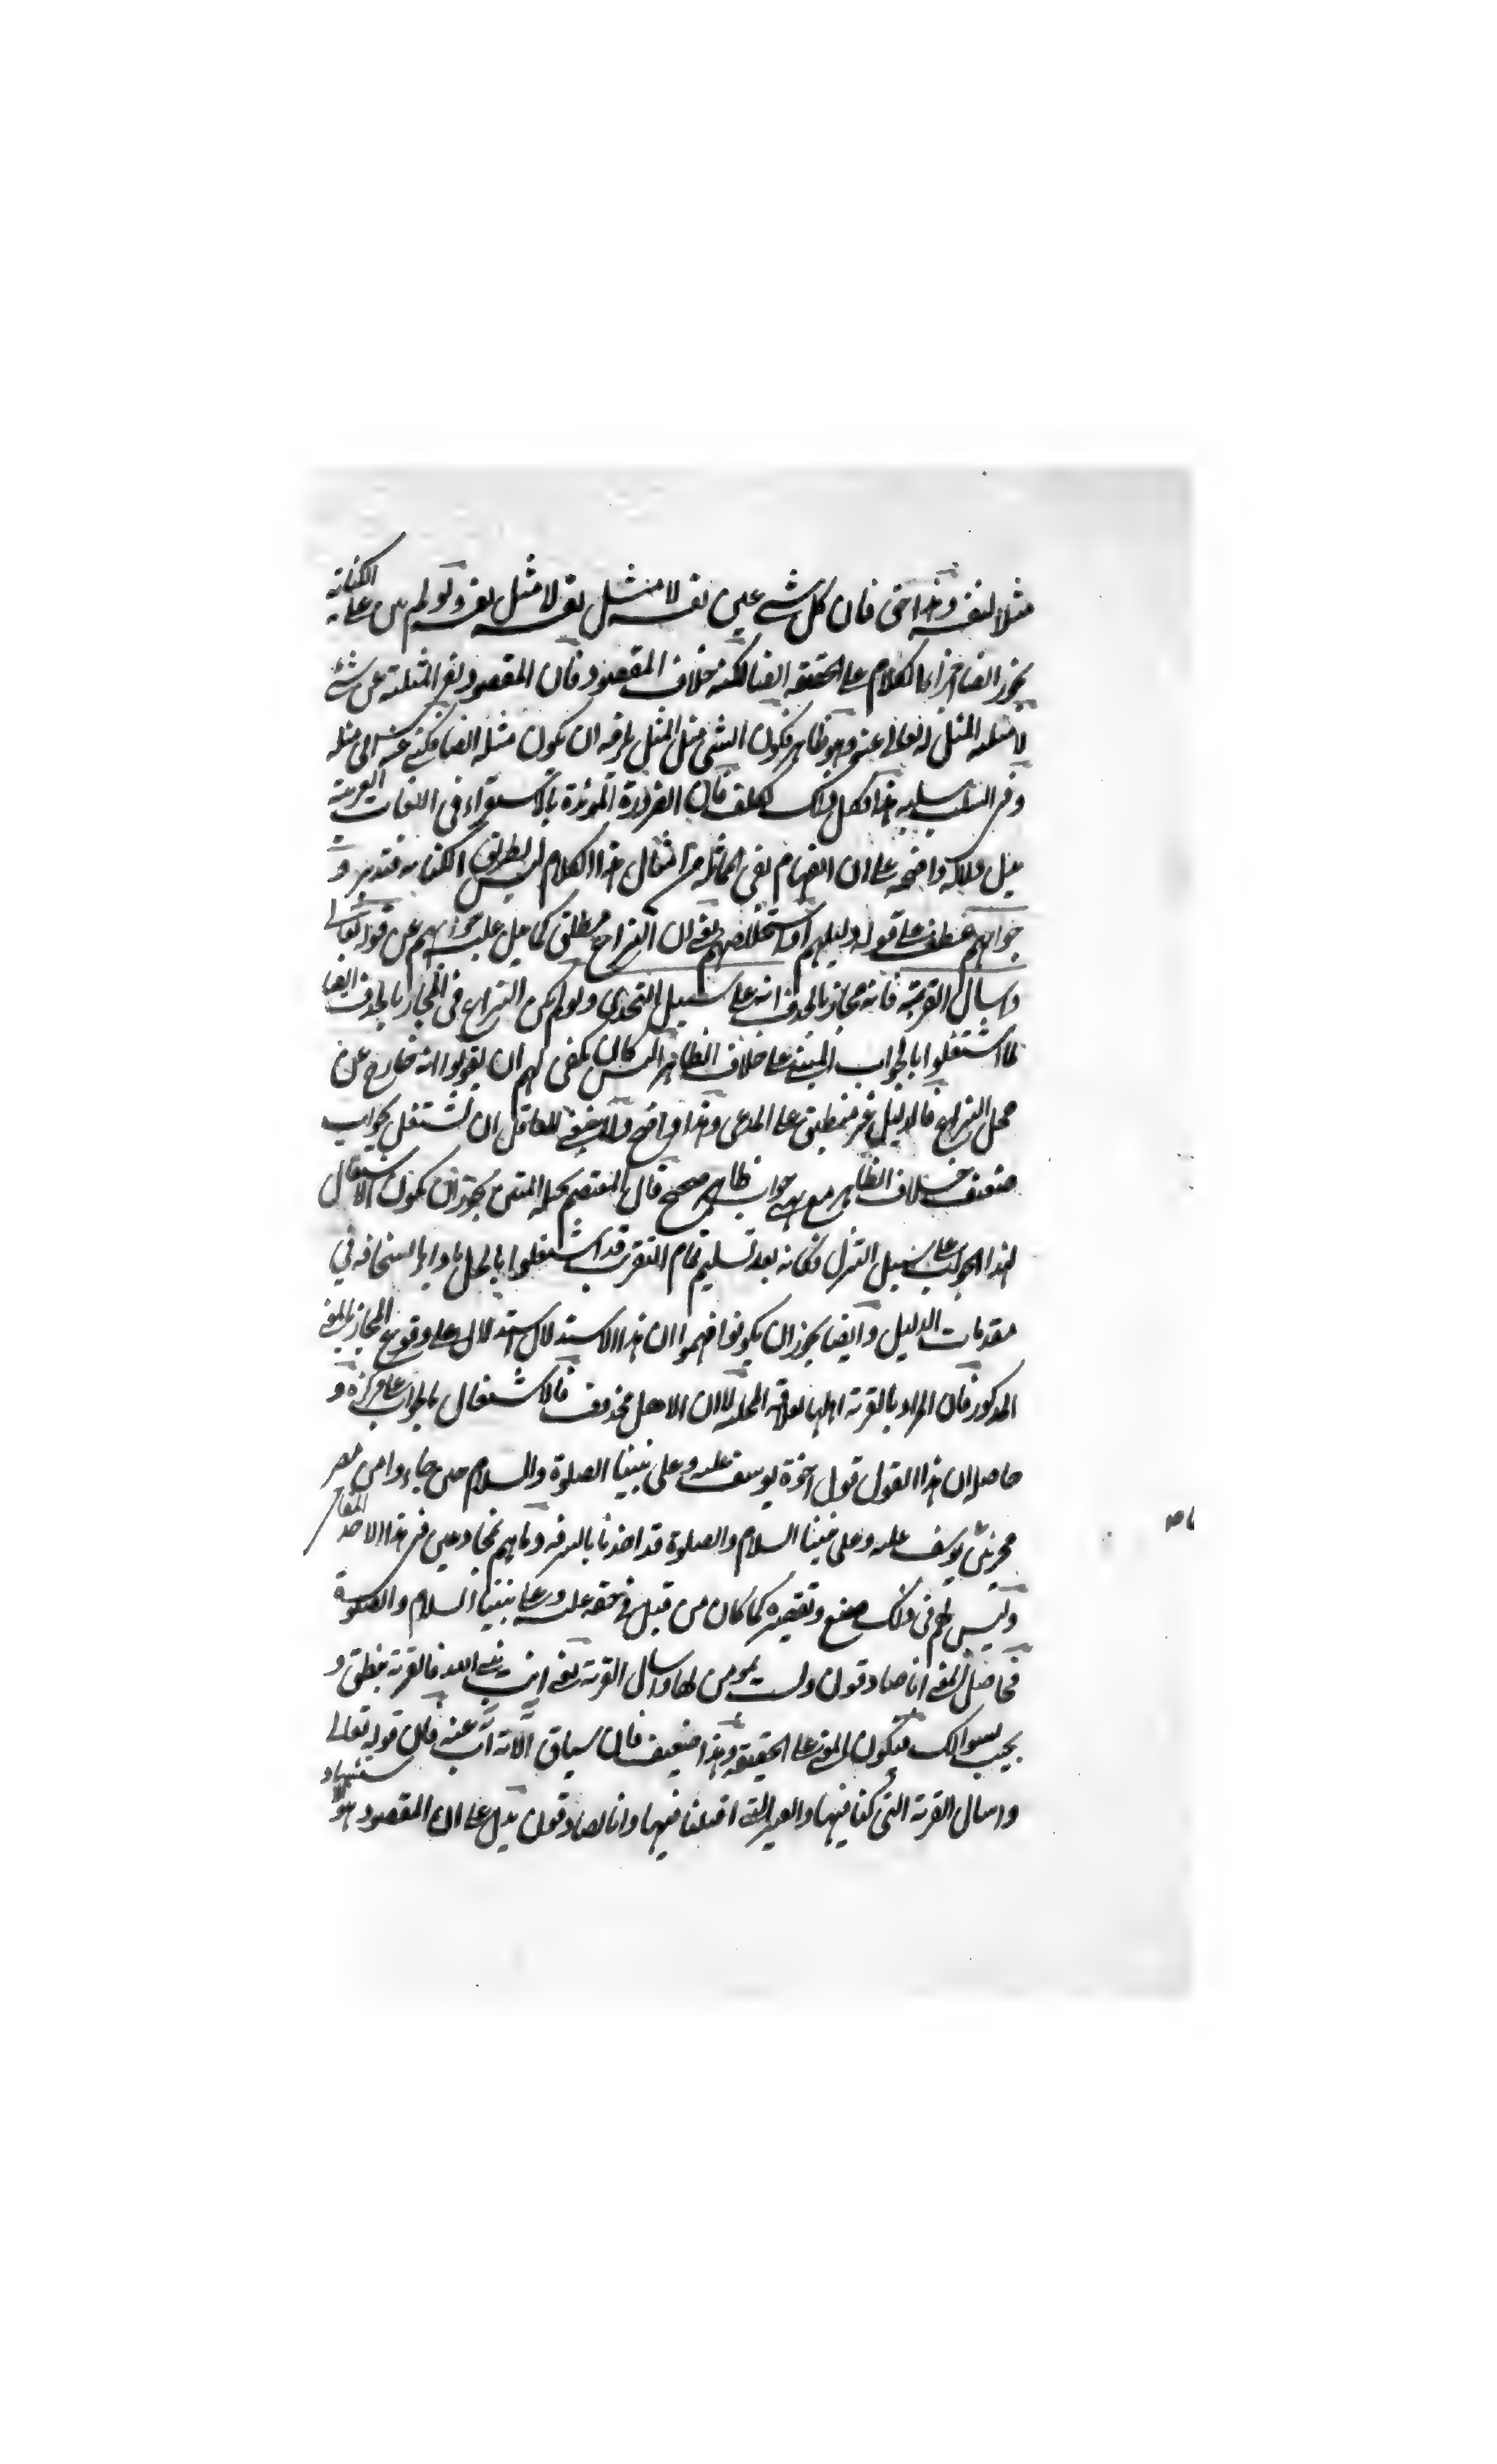 مثلا لنفسه وهذا حق فان كل شيء عين نفسه لا مثل نفسه لا مثل نفسه ولو لم يبن على الكناية
يجوز ايضا اجراء الكلام على الحقيقة ايضا لكنه خلاف المقصود فان المقصود نفي المثلية عن شيء
لا مثلية المثل له تعالى عنه وهو ظاهر فكون الشيء مثل المثل يلزمه ان يكون مثله ايضا فكنى عن مثله
هذا ولكل ذلك تكلف فان الضرورة المؤيدة بالاستقراء في اللغات العربية
يدل دلالة واضحة على ان انفهام نفي المماثلة من امثال هذا الكلام ليس بطريق الكناية فتدبر و
جوابهم عطف على قوله دليلهم او استخلاصهم يعني ان النزاع مطلق كما يدل عليه جوابهم عن قوله تعالى
واسأل القرية فانه مجاز بالحذف انه على سبيل التحدي ولو لم يكن النزاع في المجاز بالحذف ايضا
لما اشتغلوا بالجواب المبني على خلاف الظاهر بل كان يكفي لهم ان يقولوا انه خارج عن
محل النزاع فالدليل غير منطبق على المدعى وهذا واضح ولا ينبغي للعاقل ان يشتغل بجواب
ضعيف خلاف الظاهر مع جواب ظاهر صحيح قال المعتصم بحبله المتين يجوز ان يكون الاشتغال
لهذا الجواب على سبيل التنزل فكانه بعد تسليم تمام التقريب قد اشتغلوا بالحل بابداء السخافة في
مقدمات الدليل وايضا يجوز ان يكونوا فهموا ان هذا الاستدلال استدلال على وقوع المجاز بالمعنى
المذكور فان المراد بالقرية اهلها بعلاقة المحلية لا ان الاهل محذوف فالاشتغال بالجواب على مركزه و
حاصله ان هذا القول قول اخوة يوسف عليه وعلى نبينا الصلوة والسلام حين جاءوا من مصر
يوسف عليه وعلى نبينا السلام والصلوة قد اخذ بالسرقة وما هم بمخادعين في هذا الاخذ
وليس لهم في ذلك صنع وتقصير كما كان من قبل في حقه عليه وعلى نبينا السلام والصلوة
فحاصل المعنى انا صادقون ولست بمؤمن لها واسأل القرية يعني انت نبي الله فالقرية ينطق و
يجيب بسوالك فيكون المعنى على الحقيقة وهذا ضعيف فان سياق الآية آب عنه فان قوله تعالى
واسأل القرية التي كنا فيها والعير التي اقبلنا فيها وانا لصادقون يدل على ان المقصود هو الاستشهاد